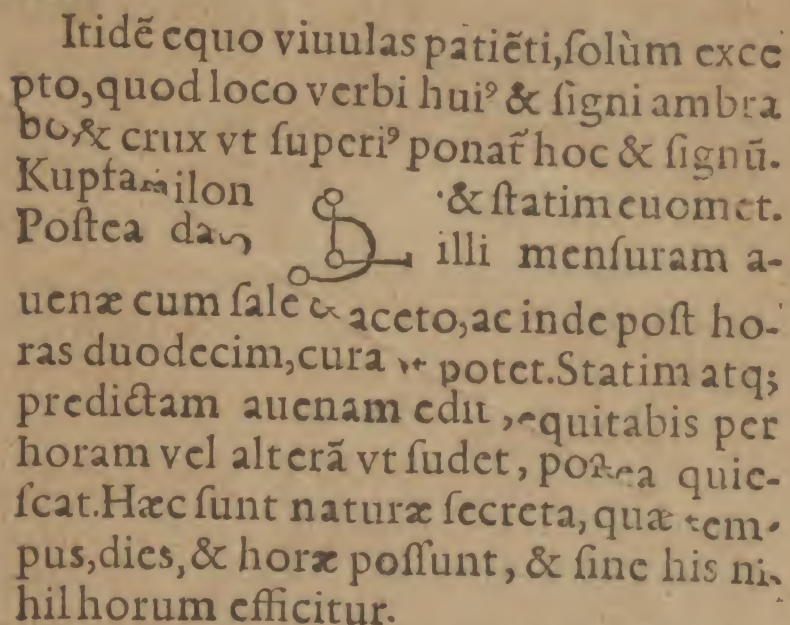 Itidẽ equo viuulas patiẽti,ſolùm exce
pto,quod loco verbi huiꝰ & ſigni ambra
bo,& crux vt ſuperiꝰ ponat̃ hoc & ſignũ.
Kupfamilon & ſtatim euomet.
Poſtea illi menſuram a-
uenæ cum ſale & aceto,ac inde poſt ho-
ras duodecim,cura vt potet.Statim atq;
predictam auenam edit ,equitabis per
horam vel alterã vt ſudet, poſtea quie-
ſcat.Hæc ſunt naturæ ſecreta,quæ tem-
pus,dies,& horæ poſſunt, & ſine his ni-
hil horum efficitur.